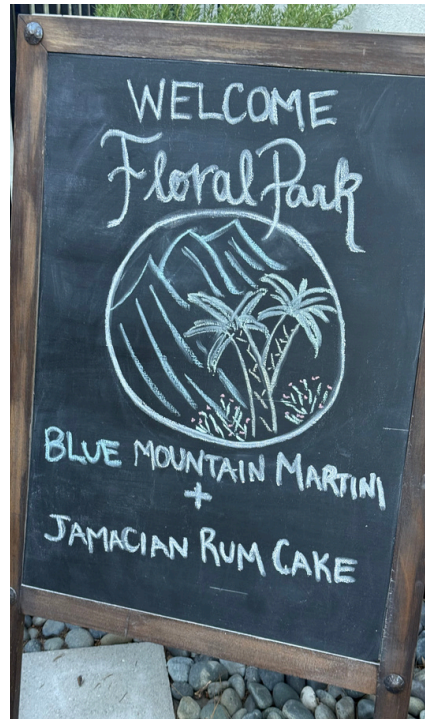 WELCOME
Floral Park
BLUE MOUNTAIN MARTINI
+
JAMACIAN RUM CAKE